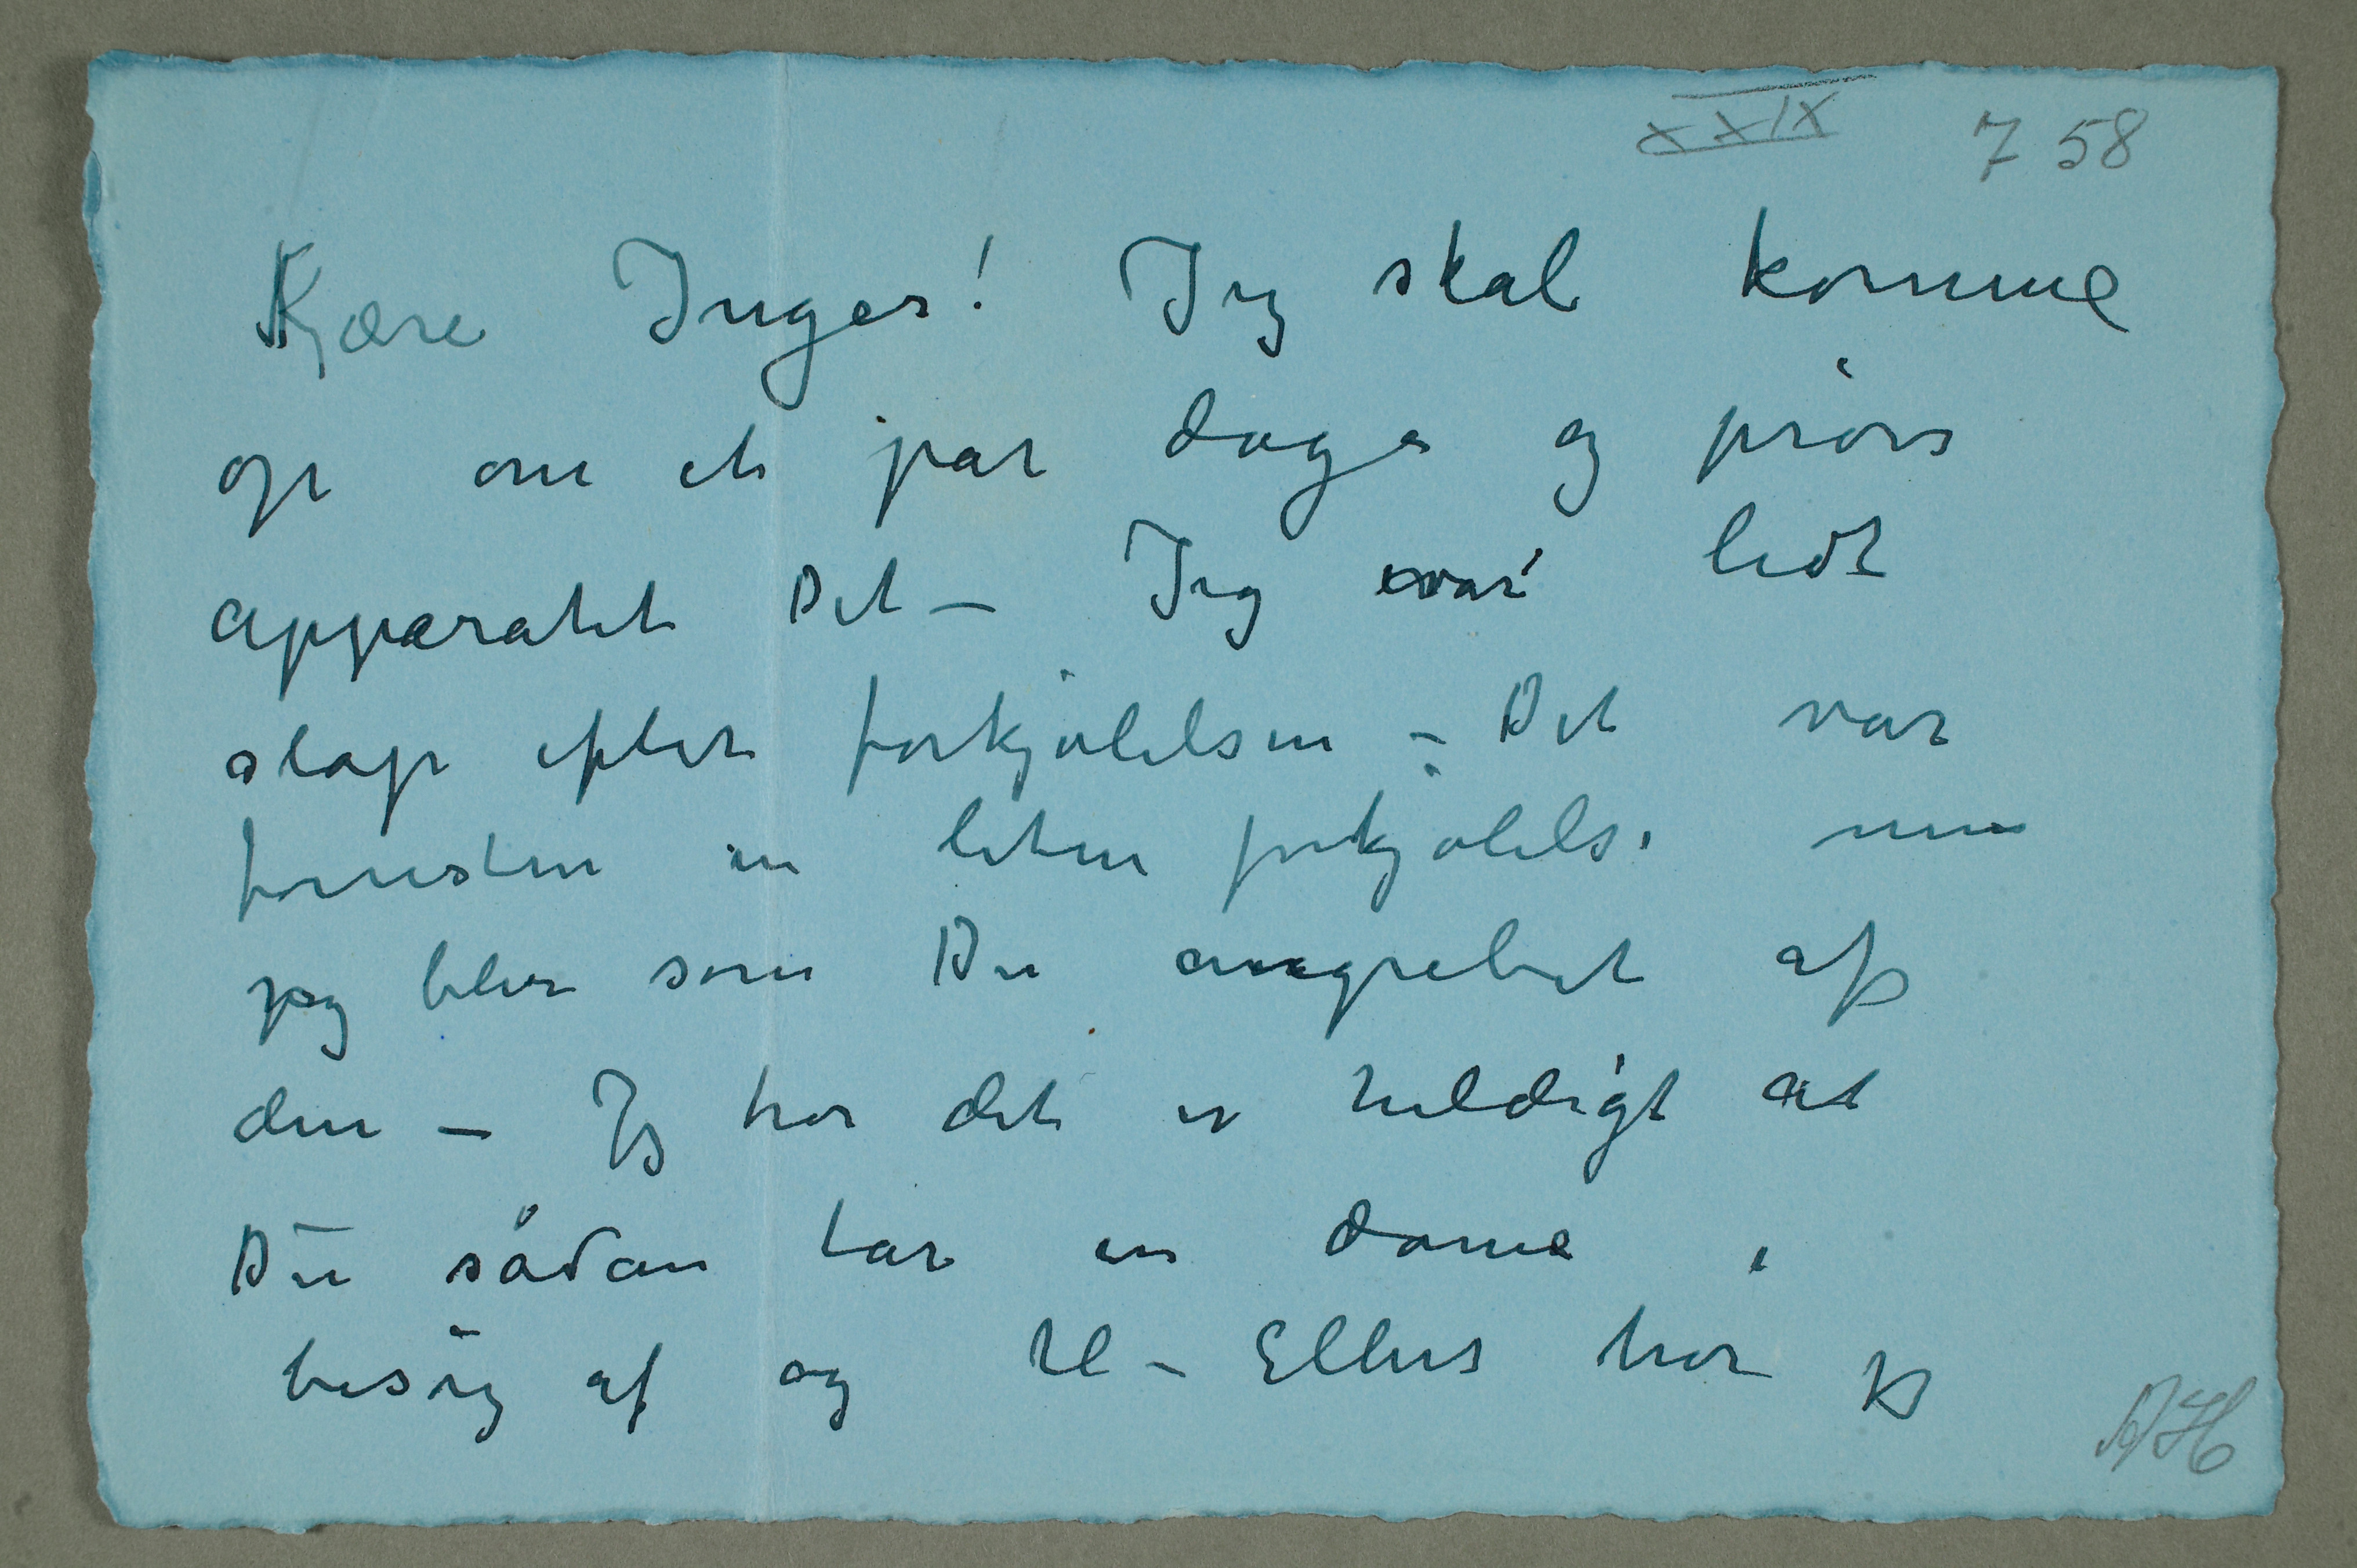 XXIX 758
Kjære Inger! Jeg skal komme
op om et par dage og prøve
apparatet Det – Jeg var lidt
slap efter forkjølelsen – Det var
forresten en liten forkjølelse men
jeg blir som Du angrebet af
den – Jeg tror det er heldigt at
Du sådan tar en dame i
besøg af og til – Ellers tror jeg